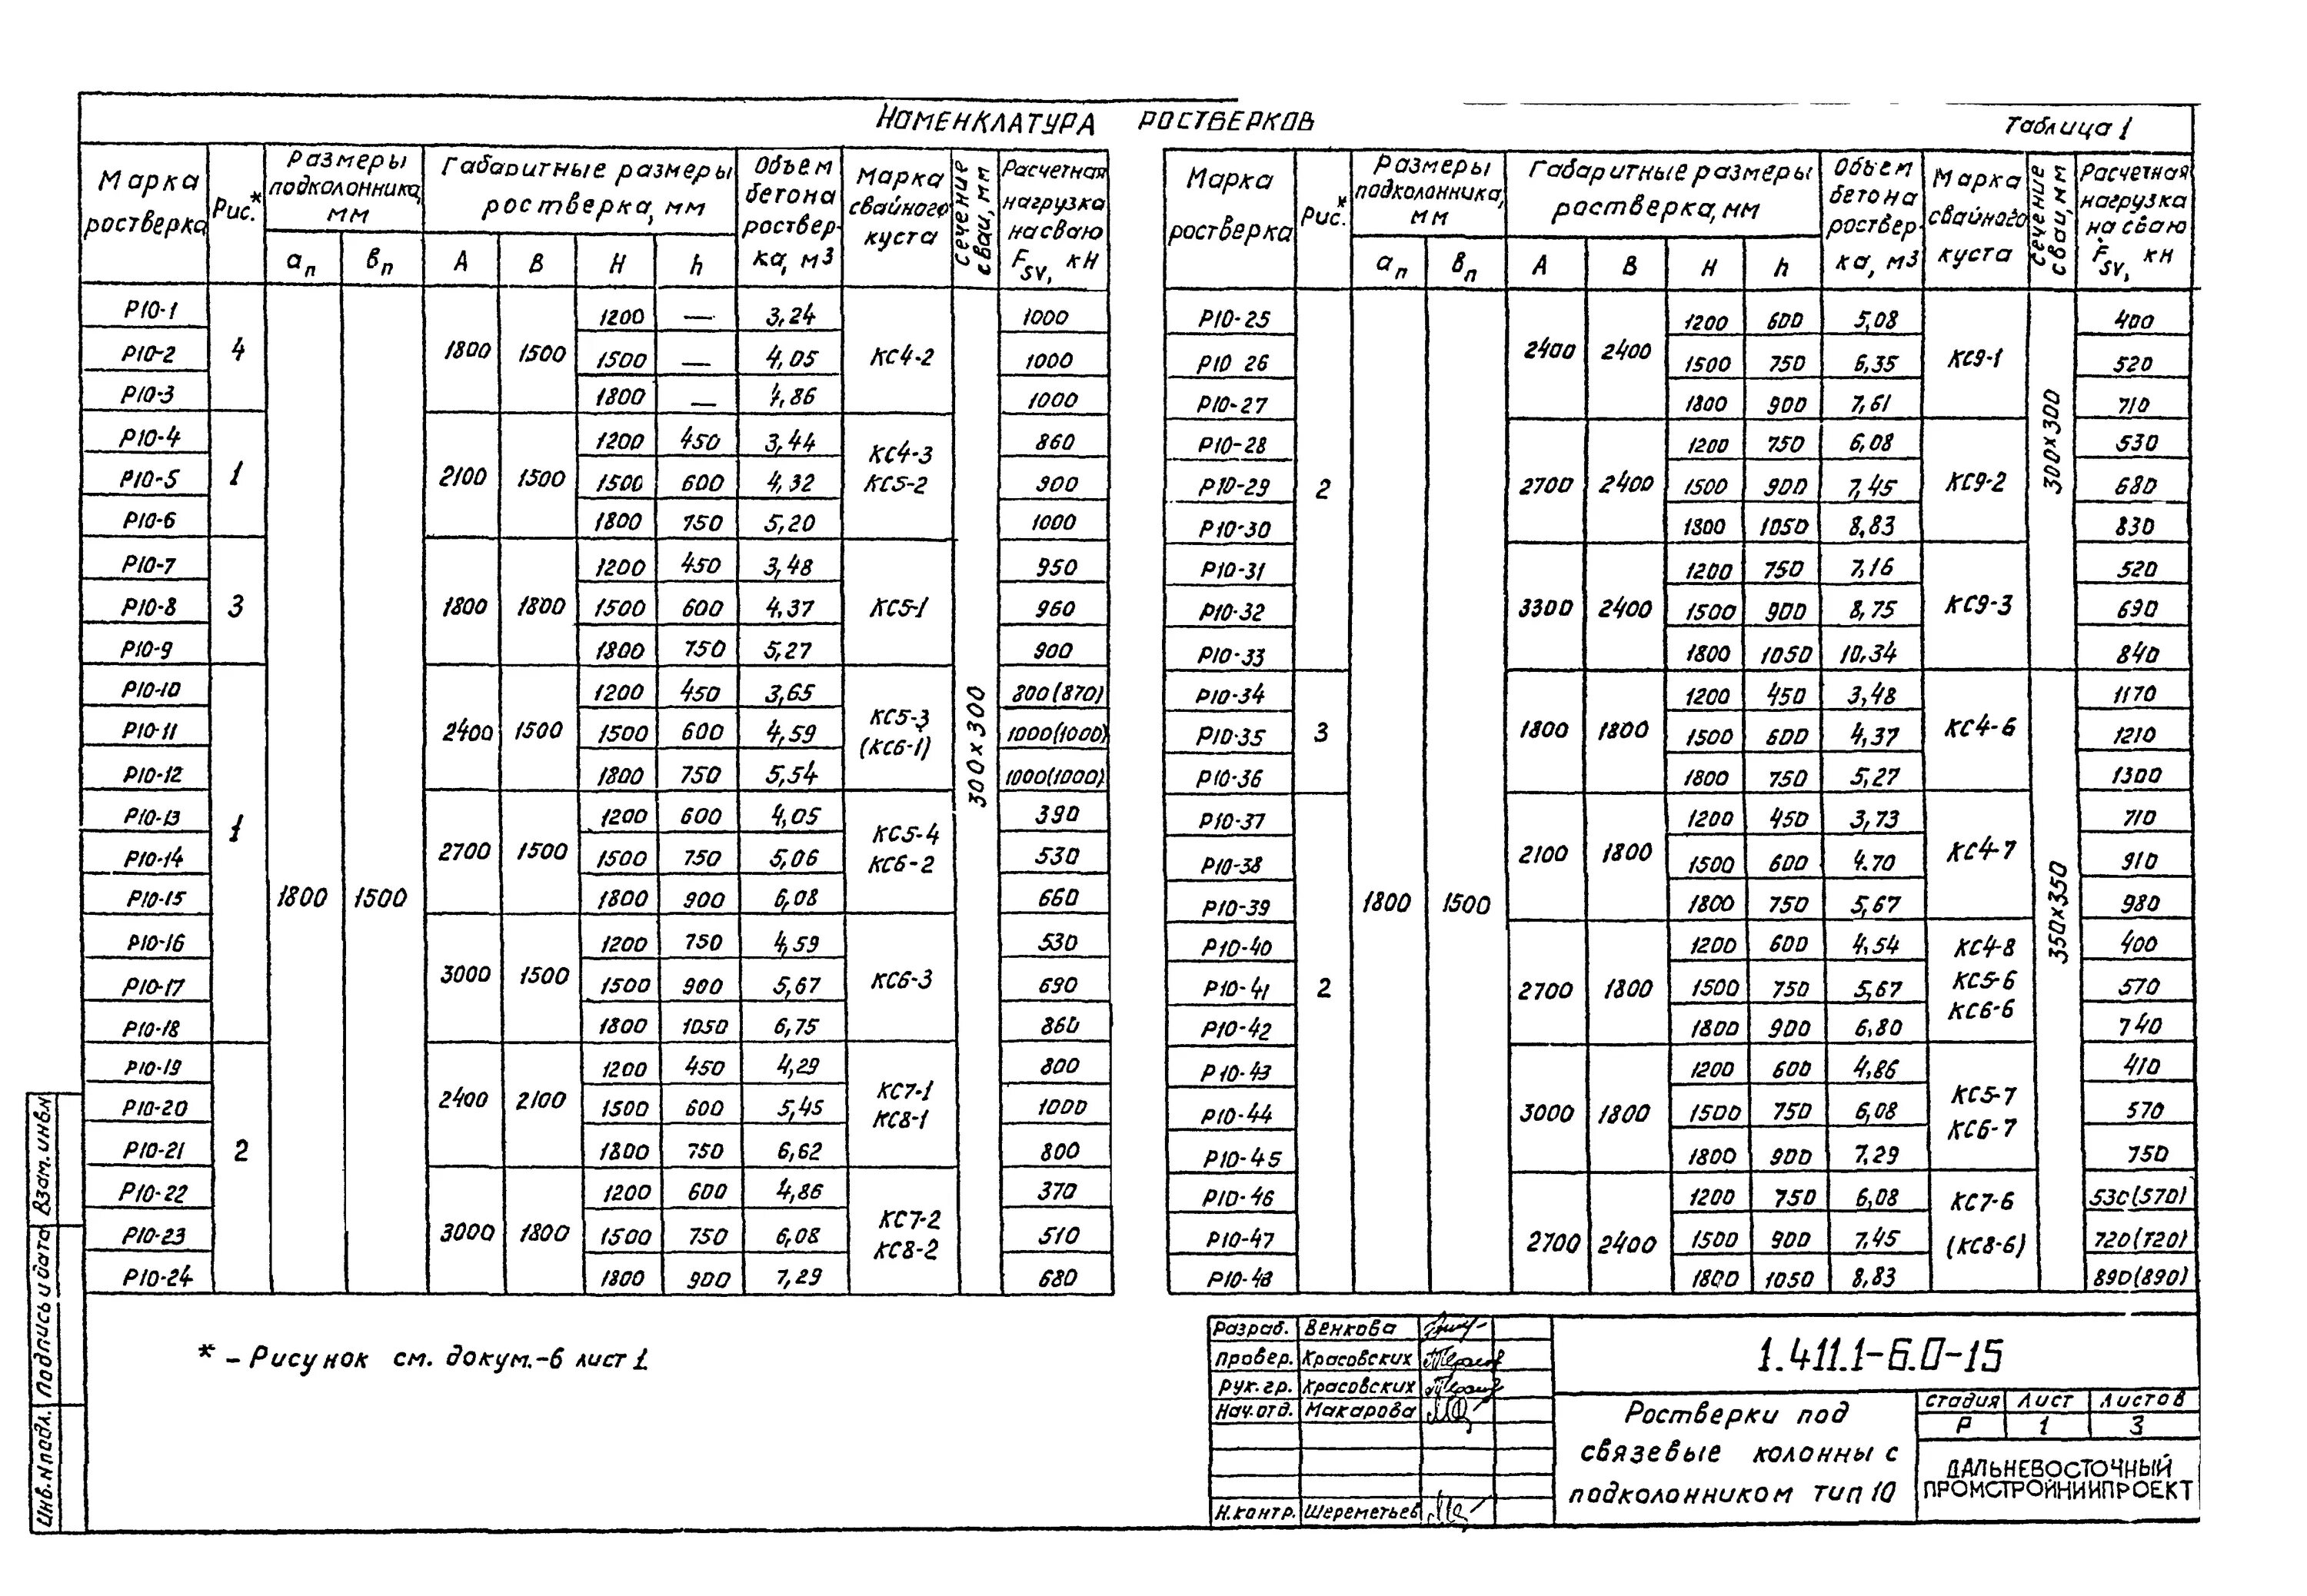 Номенклатура ростверков
Таблица 1
Марка ростверка | Рис.* | Размеры подколонника, мм | Габаритные размеры ростверка, мм | Объем бетона роствер-ка, м3 | Марка свайного куста | Сечение сваи, мм | Расчетная нагрузка на сваю Fsv, кН
aп | вп | А | В | Н | h
Р10-1 | 4 | 1800 | 1500 | 1800 | 1500 | 1200 | — | 3,24 | КС4-2 | 300х300 | 1000
Р10-2 | 1500 | — | 4,05 | 1000
Р10-3 | 1800 | — | 4,86 | 1000
Р10-4 | 1 | 2100 | 1500 | 1200 | 450 | 3,44 | КС4-3 КС5-2 | 860
Р10-5 | 1500 | 600 | 4,32 | 900
Р10-6 | 1800 | 750 | 5,20 | 1000
Р10-7 | 3 | 1800 | 1800 | 1200 | 450 | 3,48 | КС5-1 | 950
Р10-8 | 1500 | 600 | 4,37 | 960
Р10-9 | 1800 | 750 | 5,27 | 900
Р10-10 | 1 | 2400 | 1500 | 1200 | 450 | 3,65 | КС5-3 (КС6-1) | 800(870)
Р10-11 | 1500 | 600 | 4,59 | 1000(1000)
Р10-12 | 1800 | 750 | 5,54 | 1000(1000)
Р10-13 | 2700 | 1500 | 1200 | 600 | 4,05 | КС5-4 КС6-2 | 390
Р10-14 | 1500 | 750 | 5,06 | 530
Р10-15 | 1800 | 900 | 6,08 | 660
Р10-16 | 3000 | 1500 | 1200 | 750 | 4,59 | КС6-3 | 530
Р10-17 | 1500 | 900 | 5,67 | 690
Р10-18 | 1800 | 1050 | 6,75 | 860
Р10-19 | 2 | 2400 | 2100 | 1200 | 450 | 4,29 | КС7-1 КС8-1 | 800
Р10-20 | 1500 | 600 | 5,45 | 1000
Р10-21 | 1800 | 750 | 6,62 | 800
Р10-22 | 3000 | 1800 | 1200 | 600 | 4,86 | КС7-2 КС8-2 | 370
Р10-23 | 1500 | 750 | 6,08 | 510
Р10-24 | 1800 | 900 | 7,29 | 680
Марка ростверка | Рис.* | Размеры подколонника, мм | Габаритные размеры ростверка, мм | Объем бетона роствер-ка, м3 | Марка свайного куста | Сечение сваи, мм | Расчетная нагрузка на сваю Fsv, кН
aп | вп | А | В | Н | h
Р10-25 | 2 | 1800 | 1500 | 2400 | 2400 | 1200 | 600 | 5,08 | КС9-1 | 300х300 | 400
Р10 26 | 1500 | 750 | 6,35 | 520
Р10-27 | 1800 | 900 | 7,61 | 710
Р10-28 | 2700 | 2400 | 1200 | 750 | 6,08 | КС9-2 | 530
Р10-29 | 1500 | 900 | 7,45 | 680
Р10-30 | 1800 | 1050 | 8,83 | 830
Р10-31 | 3300 | 2400 | 1200 | 750 | 7,16 | КС9-3 | 520
Р10-32 | 1500 | 900 | 8,75 | 690
Р10-33 | 1800 | 1050 | 10,34 | 840
Р10-34 | 3 | 1800 | 1800 | 1200 | 450 | 3,48 | КС4-6 | 350х350 | 1170
Р10-35 | 1500 | 600 | 4,37 | 1210
Р10-36 | 1800 | 750 | 5,27 | 1300
Р10-37 | 2 | 2100 | 1800 | 1200 | 450 | 3,73 | КС4-7 | 710
Р10-38 | 1500 | 600 | 4.70 | 910
Р10-39 | 1800 | 750 | 5,67 | 980
Р10-40 | 2700 | 1800 | 1200 | 600 | 4,54 | КС4-8 КС5-6 КС6-6 | 400
Р10-41 | 1500 | 750 | 5,67 | 570
Р10-42 | 1800 | 900 | 6,80 | 740
Р10-43 | 3000 | 1800 | 1200 | 600 | 4,86 | КС5-7 КС6-7 | 410
Р10-44 | 1500 | 750 | 6,08 | 570
Р10-45 | 1800 | 900 | 7,29 | 750
Р10-46 | 2700 | 2400 | 1200 | 750 | 6,08 | КС7-6 (КС8-6) | 530(570)
Р10-47 | 1500 | 900 | 7,45 | 720(720)
Р10-48 | 1800 | 1050 | 8,83 | 890(890)
* – Рисунок см. докум.-6 лист 1
Инв.№подл. Подпись и дата Взам.инв.№
Разраб. Венкова
Провер. Красовских
Рук.гр. Красовских
Нач.отд. Макарова
Н.контр. Шереметьев
1.411.1-6.0-15
Ростверки под
связевые колонны с
подколонником тип 10
Стадия Лист Листов
Р 1 3
ДАЛЬНЕВОСТОЧНЫЙ
ПРОМСТРОЙНИИПРОЕКТ